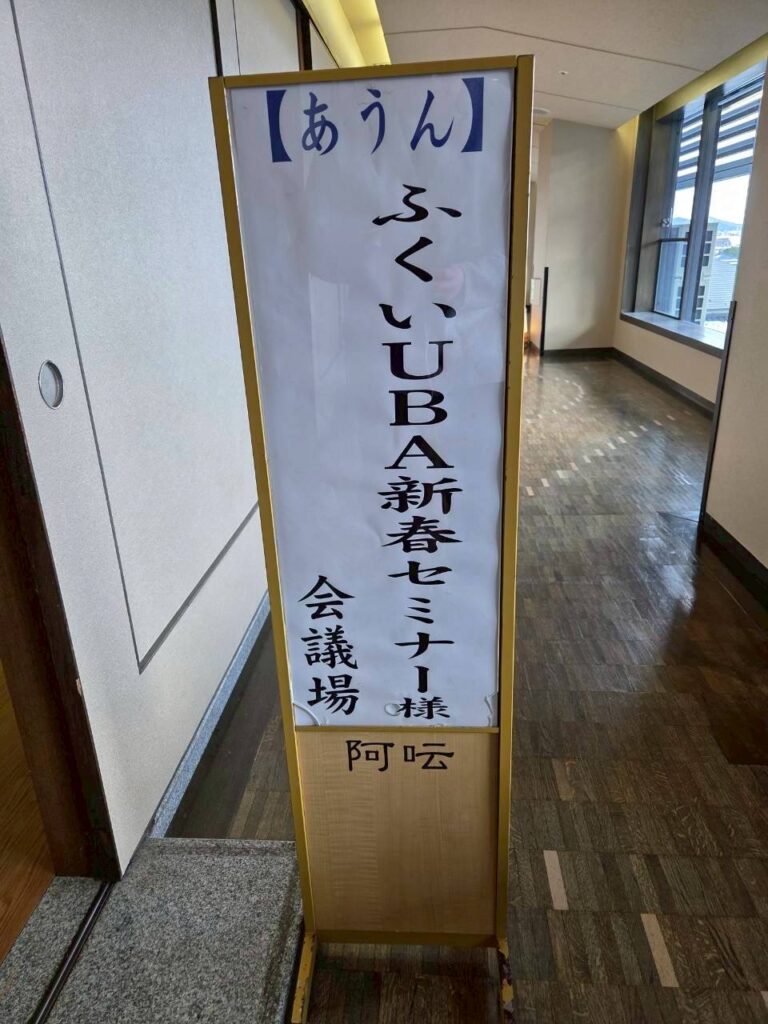 【あうん】
ふくいUBA新春セミナー様
会議場
阿吽